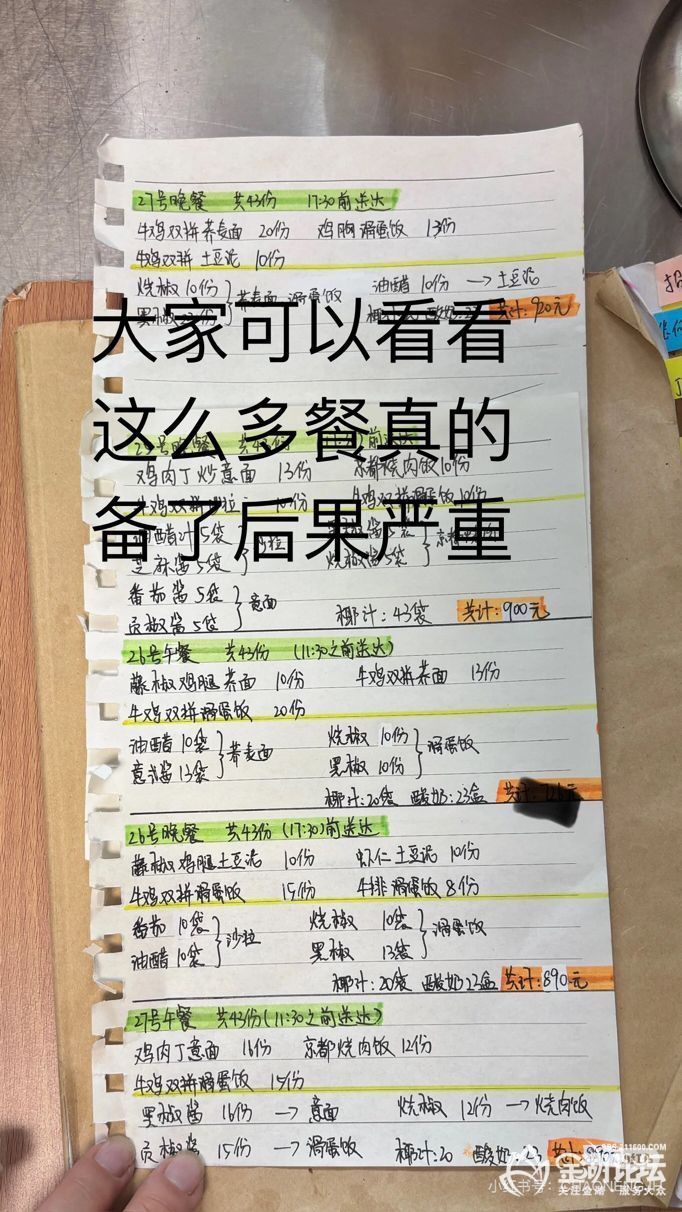 27号晚餐 共43份 17:30前送达
牛鸡双拼荞麦面 20份 鸡胸滑蛋饭 13份
牛鸡双拼 土豆泥 10份
烧椒 10份 油醋 10份 → 土豆泥
荞麦面 滑蛋饭
共计:920元
大家可以看看
这么多餐真的
备了后果严重
晚餐
鸡肉丁炒意面 13份 京都烧肉饭10份
牛鸡双拼 10份 牛鸡双拼滑蛋饭10份
油醋汁5袋
芝麻酱5袋 烧椒酱5袋
番茄酱5袋 意面
贡椒酱5袋 椰汁:43袋 共计:900元
26号午餐 共43份 (11:30之前送达)
藤椒鸡腿荞面 10份 牛鸡双拼荞面 13份
牛鸡双拼滑蛋饭 20份
油醋 10袋 荞麦面 烧椒 10份 滑蛋饭
意式酱13袋 黑椒 10份
椰汁:20袋 酸奶:23盒 共计:
26号晚餐 共43份 (17:30)前送达
藤椒鸡腿土豆泥 10份 虾仁土豆泥 10份
牛鸡双拼滑蛋饭 15份 牛排滑蛋饭 8份
番茄 10袋 沙拉 烧椒 10袋 滑蛋饭
油醋 10袋 黑椒 13袋
椰汁:20袋 酸奶23盒 共计:890元
27号午餐 共43份(11:30之前送达)
鸡肉丁意面 16份 京都烧肉饭 12份
牛鸡双拼滑蛋饭 15份
黑椒酱 16份 → 意面 烧椒 12份 → 烧肉饭
贡椒酱 15份 → 滑蛋饭 椰汁:20 酸奶:
金湖论坛
关注金湖·服务大众
小红书号: